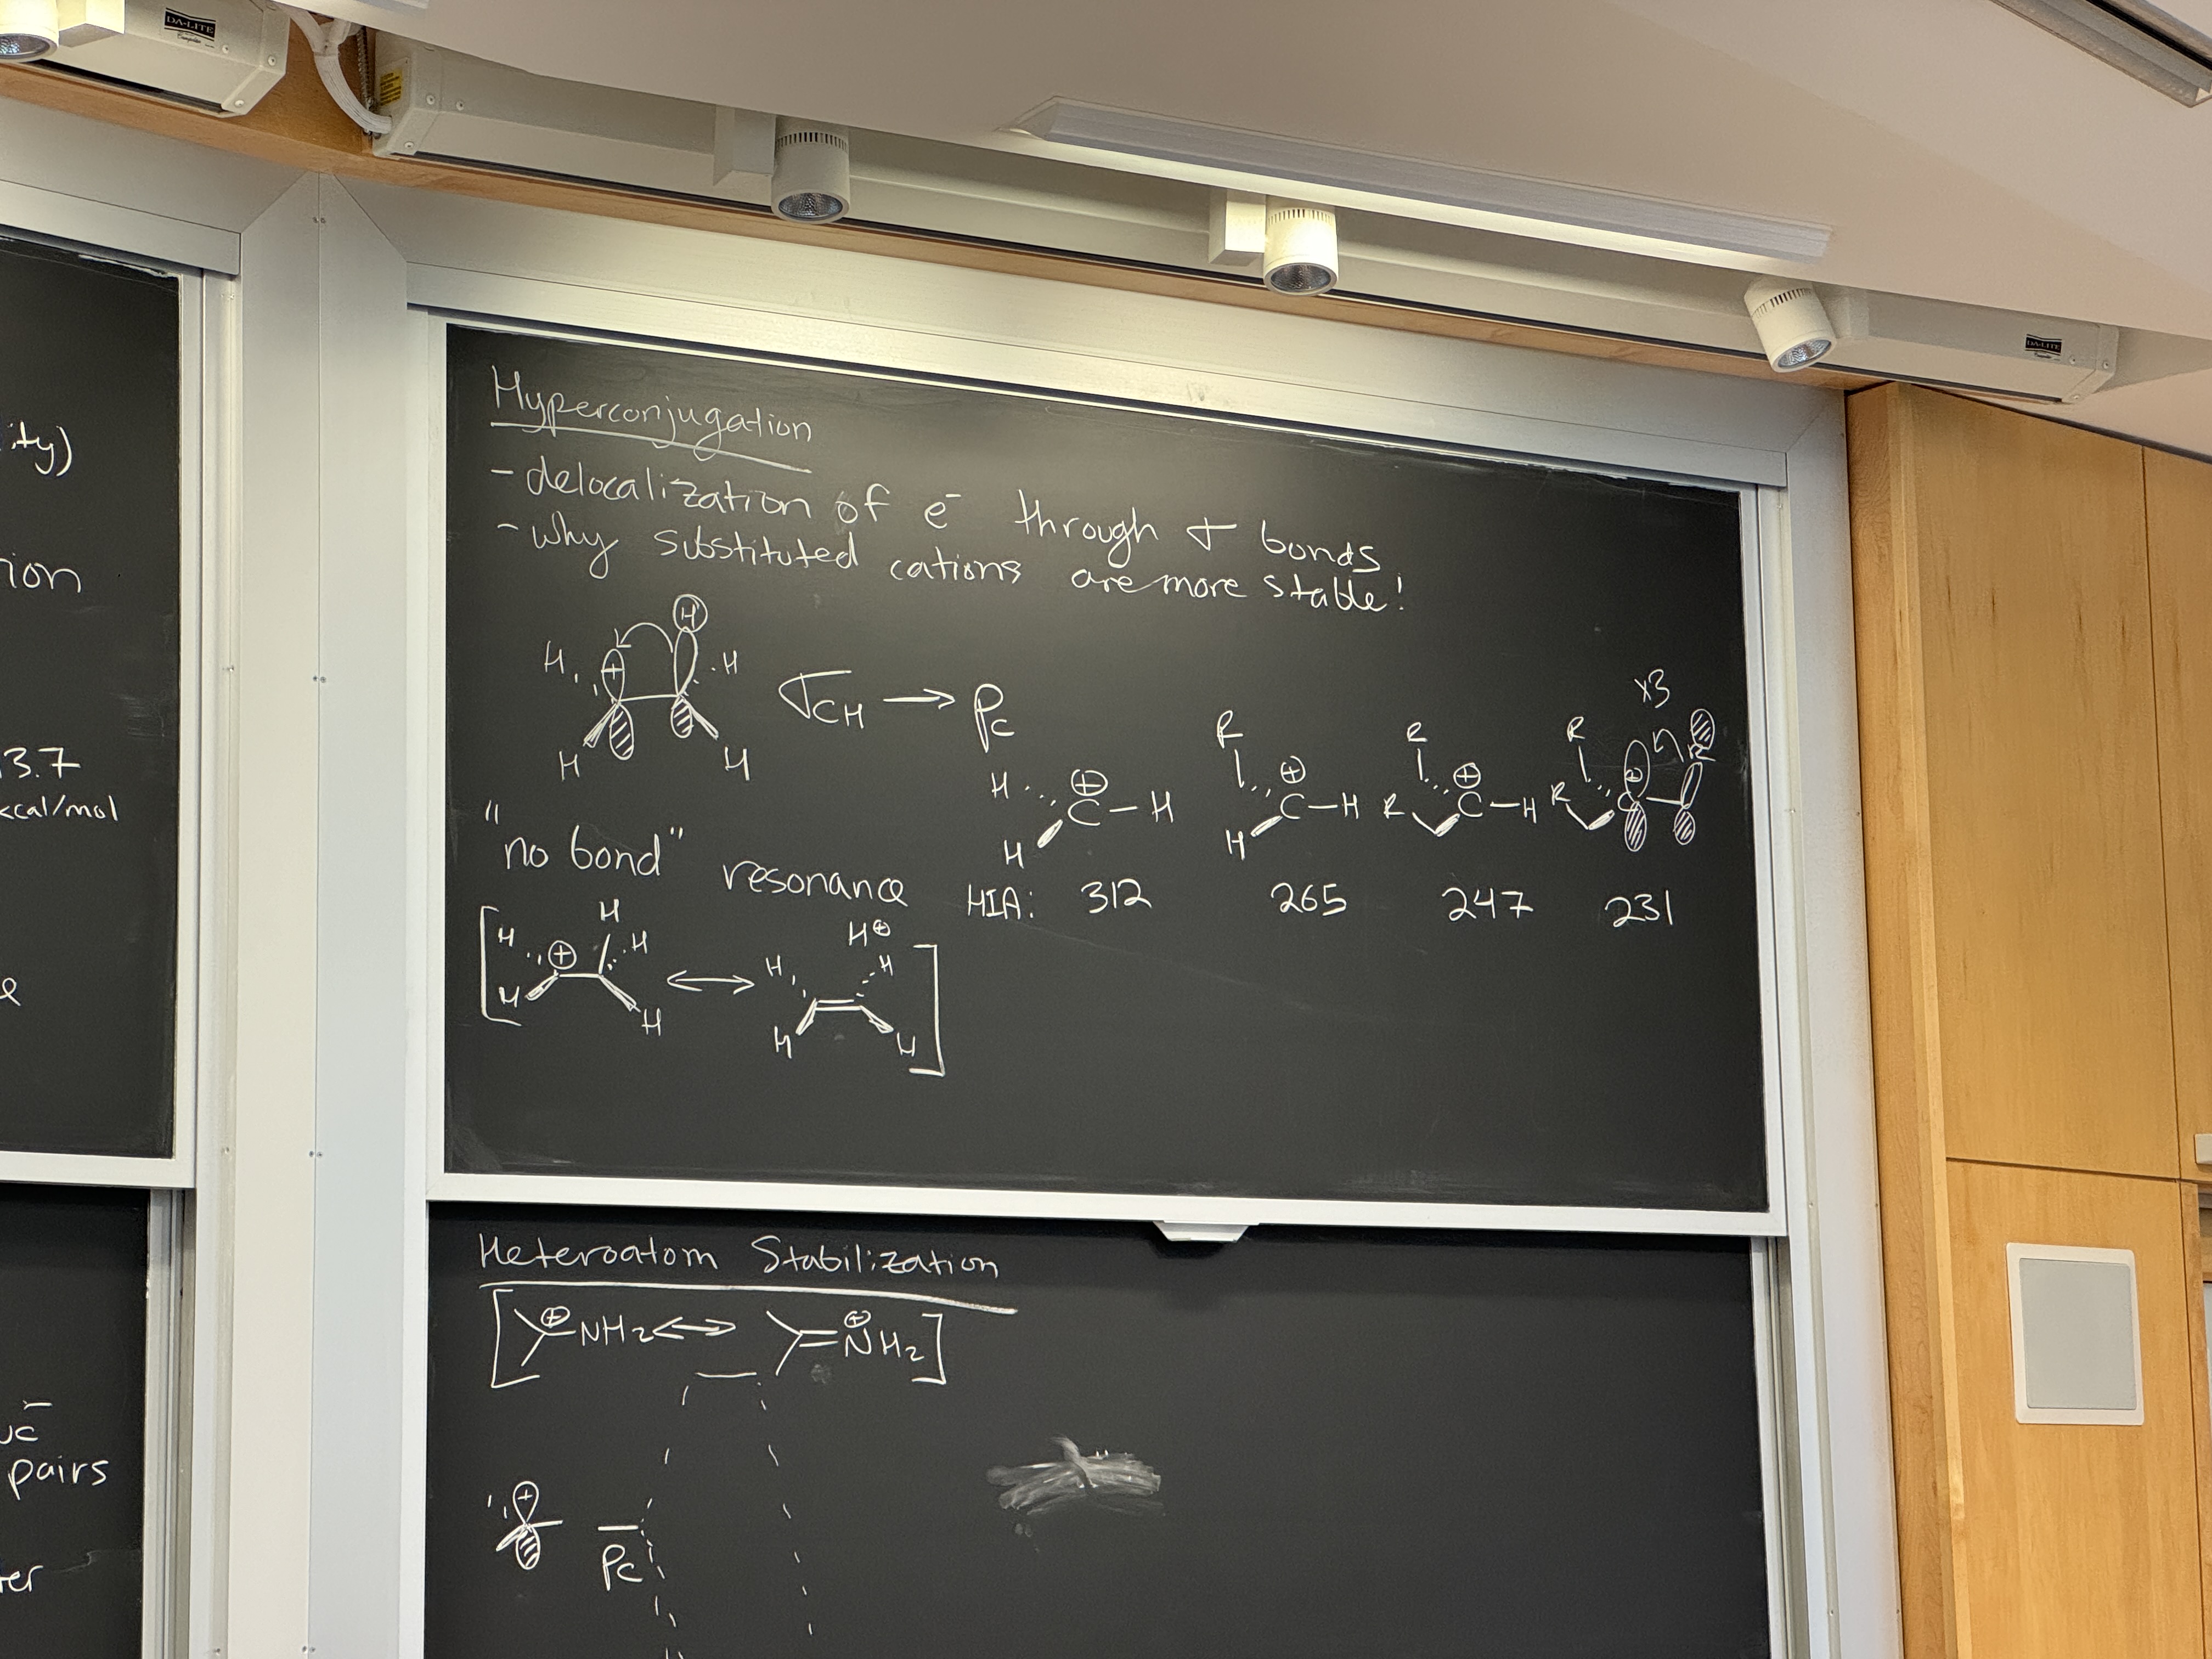 DA-LITE
DA-LITE
ity)
ion
3.7
kcal/mol
pairs
Hyperconjugation
- delocalization of e⁻ through σ bonds
- why substituted cations are more stable!
H H ⊕ H H H
σCH → Pc
"no bond" resonance
[ H H ⊕ H H H ↔ H H H⊕ H H ]
H H ⊕ C – H
R H ⊕ C – H
R R ⊕ C – H
x3
R R ⊕ C R
HIA: 312 265 247 231
Heteroatom Stabilization
[ ⊕ NH₂ ↔ = ⊕ NH₂ ]
⊕
Pc